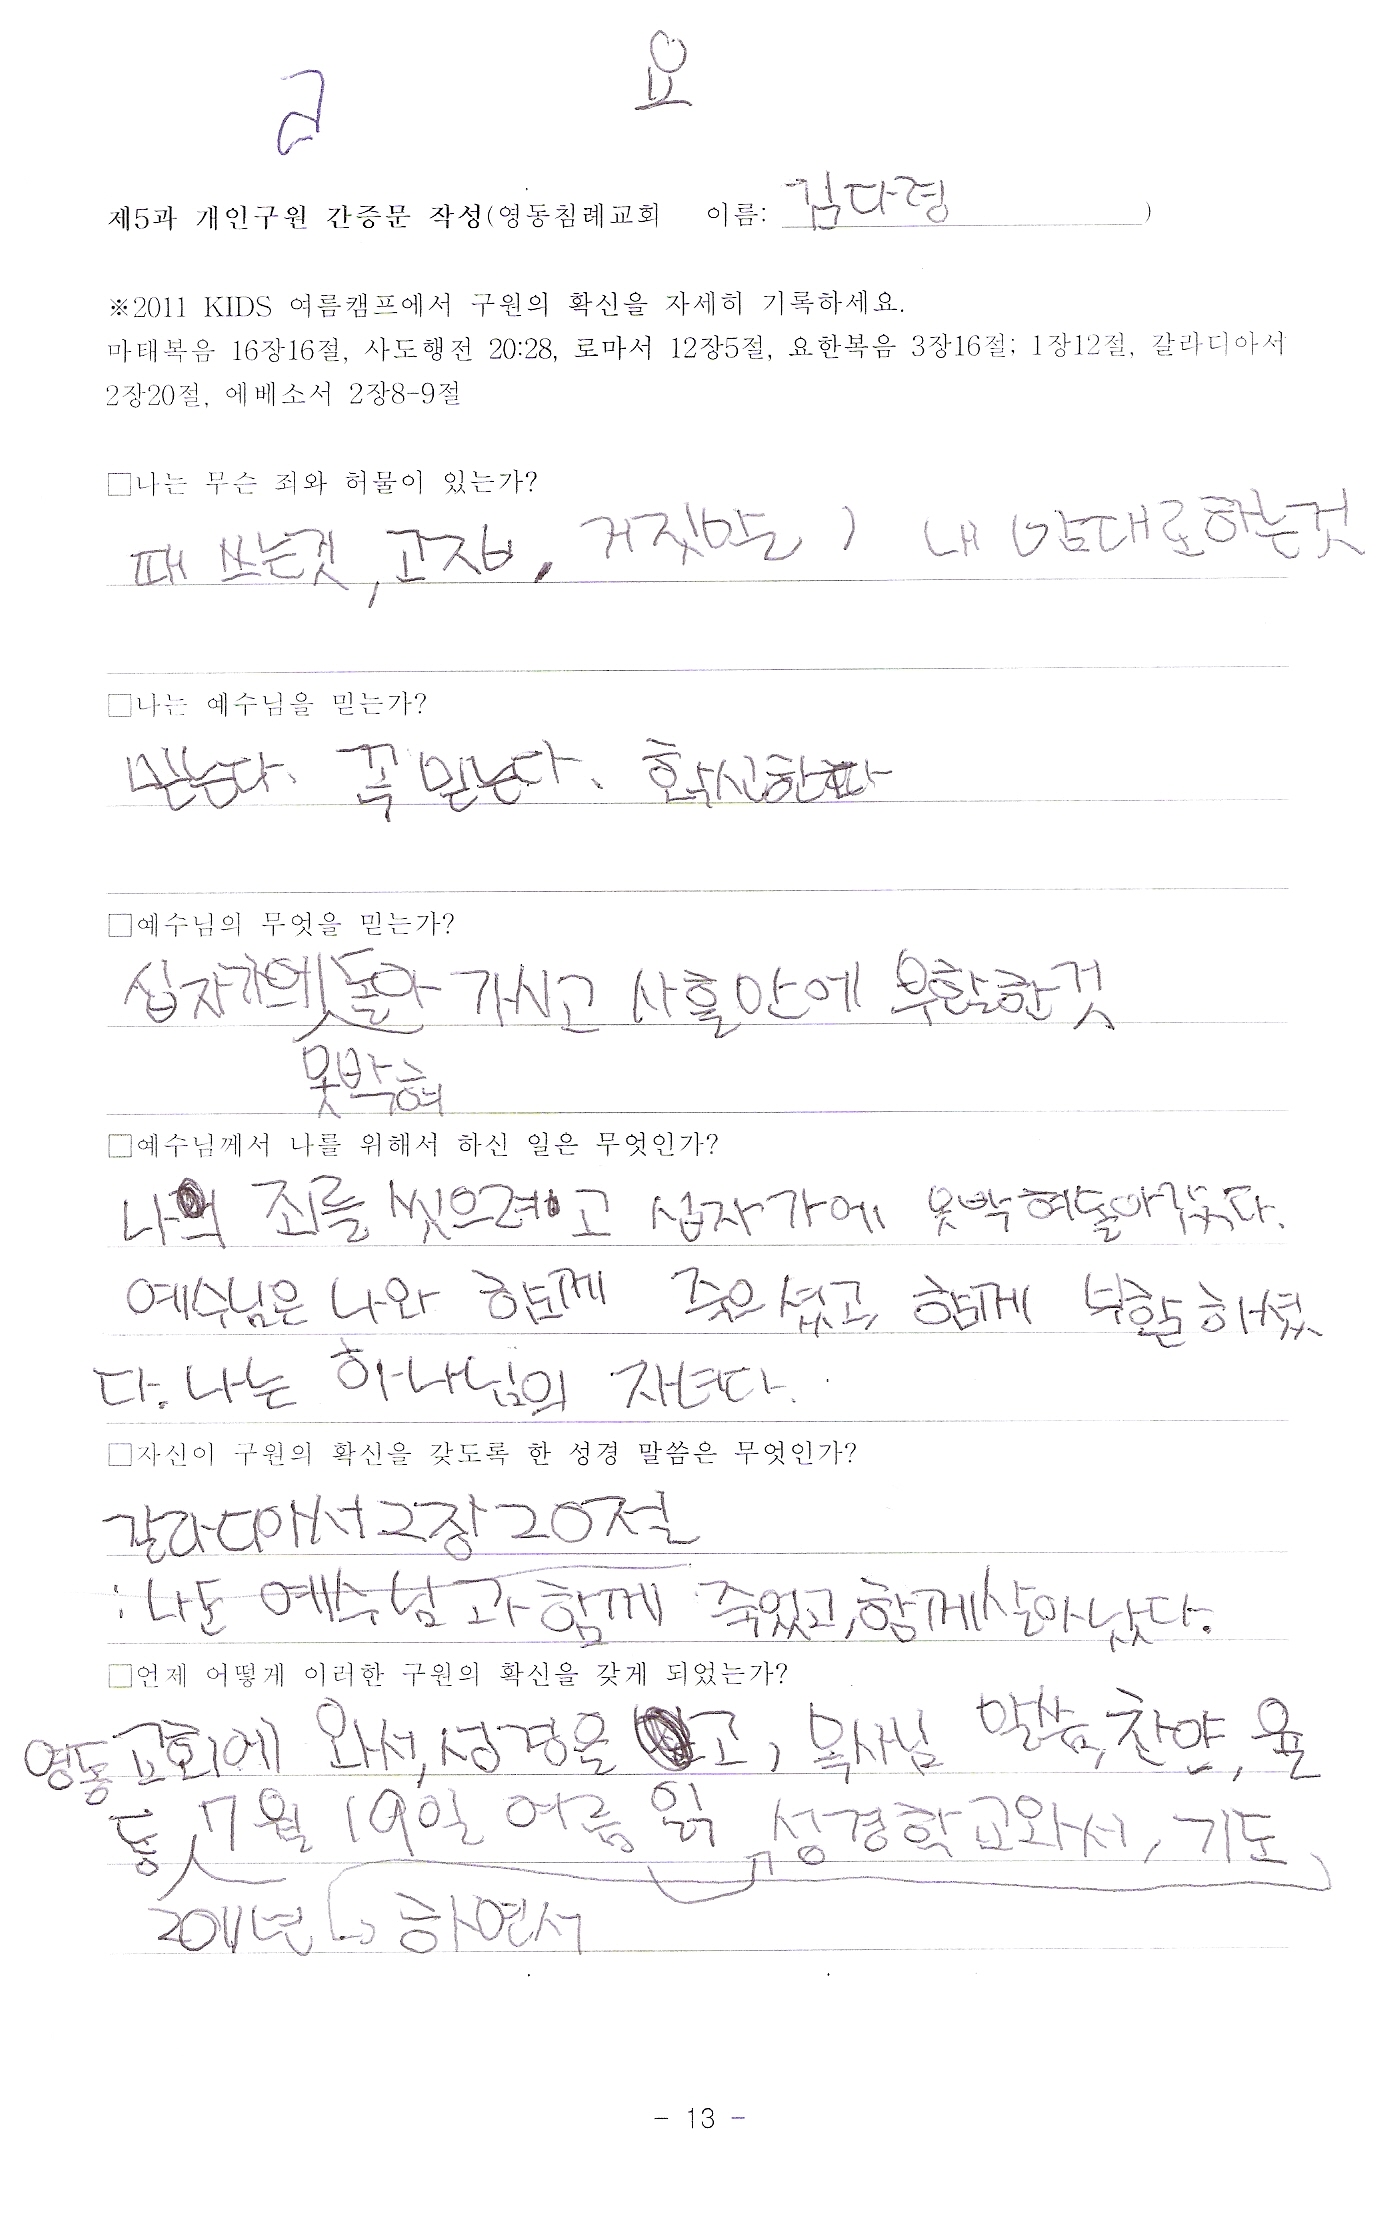 요
제5과 개인구원 간증문 작성(영동침례교회 이름: 김다령)
※2011 KIDS 여름캠프에서 구원의 확신을 자세히 기록하세요.
마태복음 16장16절, 사도행전 20:28, 로마서 12장5절, 요한복음 3장16절; 1장12절, 갈라디아서
2장20절, 에베소서 2장8-9절
□나는 무슨 죄와 허물이 있는가?
때 쓰는것, 고집, 거짓말, 내 맘대로하는것
□나는 예수님을 믿는가?
믿는다. 꼭 믿는다. 확신한다
□예수님의 무엇을 믿는가?
십자가의 돌아 가시고 사흘안에 부활한것
못박혀
□예수님께서 나를 위해서 하신 일은 무엇인가?
나의 죄를 씻으려고 십자가에 못박혀돌아갔다.
예수님은 나와 함께 죽으셨고, 함께 부활하셨
다. 나는 하나님의 자녀다.
□자신이 구원의 확신을 갖도록 한 성경 말씀은 무엇인가?
갈라디아서2장20절
:나도 예수님과함께 죽었고,함께살아났다.
□언제 어떻게 이러한 구원의 확신을 갖게 되었는가?
영동교회에 와서,성경을 고, 목사님 말씀,찬양, 율
동, 7월 19일 여름 읽 성경학교와서, 기도
2011년 하면서
- 13 -